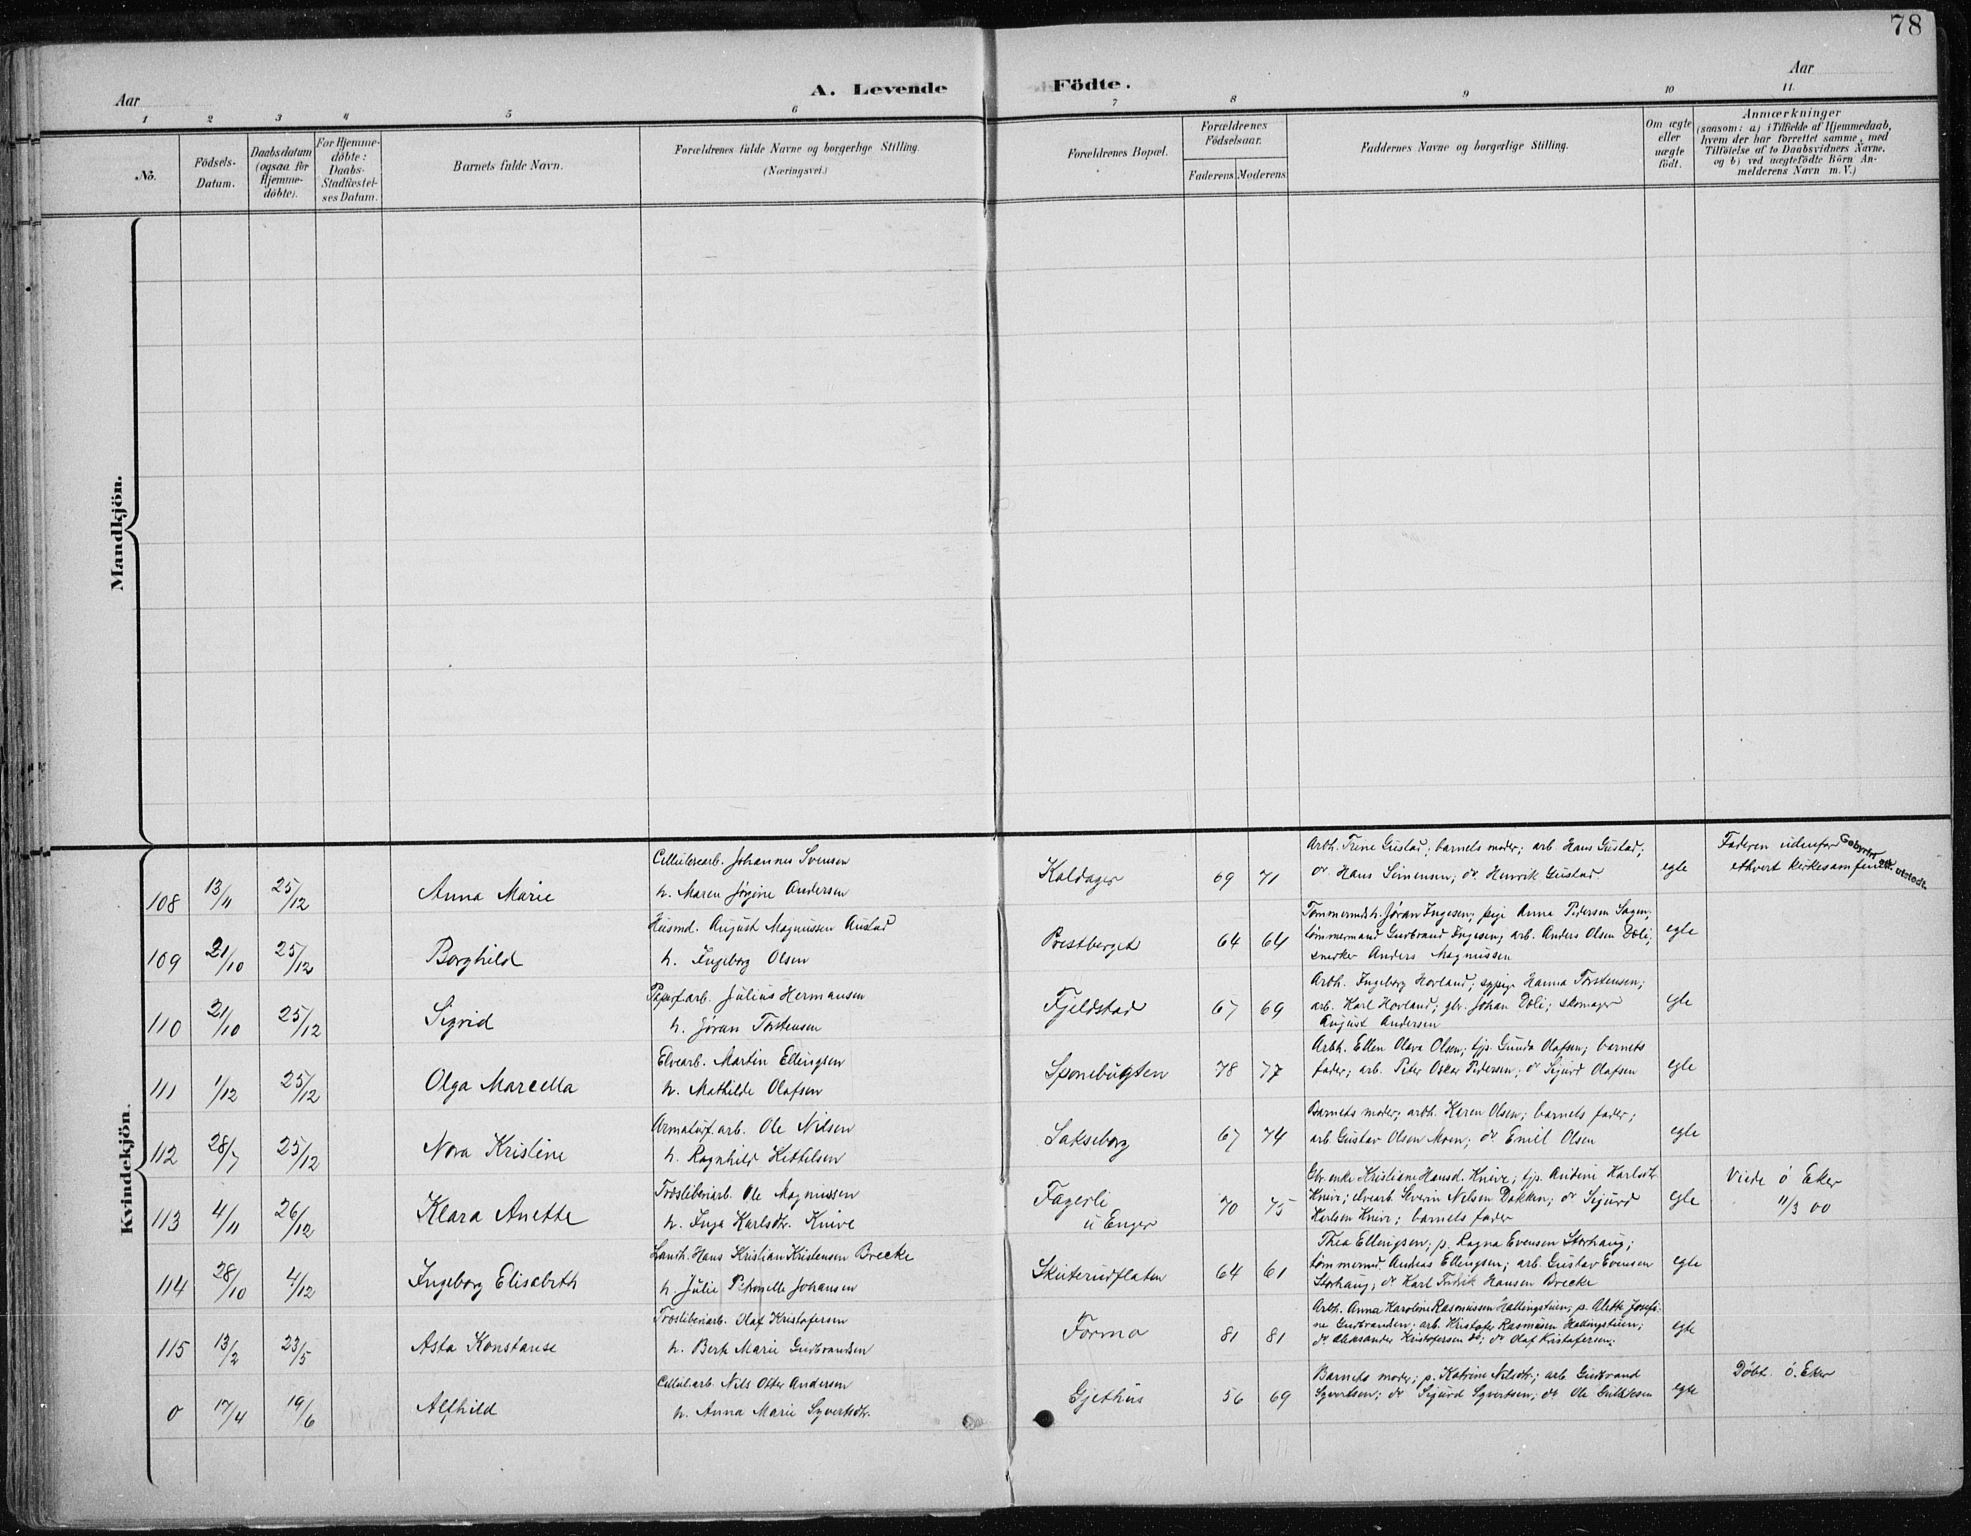 78
Aar
A. Levende Födte.
Aar
1 2 3 4 5 6 7 8 9 10 11
No.
Födsels-
Datum.
Daabsdatum
(ogsaa for
Hjemme-
döbte).
For Hjemme-
döbte:
Daabs-
Stadfæstel-
ses Datum.
Barnets fulde Navn.
Forældrenes fulde Navne og borgerlige Stilling.
(Næringsvei.)
Forældrenes Bopæl.
Forældrenes
Födselsaar.
Faderens. Moderens.
Faddernes Navne og borgerlige Stilling.
Om ægte
eller
uægte
födt.
Anmærkninger
(saasom: a) i Tilfælde af Hjemmedaab,
hvem der har forrettet samme, med
Tilföielse af to Daabsvidners Navne,
og b) ved uægtefödte Börn An-
melderens Navn m. V.)
Mandkjön.
Kvindekjön.
108 13/11 25/12 Anna Marie
Cellulosearb. Johannes Svensen
h. Maren Jørgine Andersen
Kaldager 69 71
Arbh. Trine Gustad; barnets moder; arb Hans Gustad;
do Hans Simensen; do Henrik Gustad.
egte
Faderen udenfor
ethvert kirkesamfund
109 21/10 25/12 Borghild
Husmd. August Magnussen Austad
h. Ingeborg Olsen
Prestberget 64 64
Tømmermdsh. Jøran Ingesen; pige Anna Pedersen Sagen;
tømmermand Gudbrand Ingesen; arb. Anders Olsen Doli;
snerker Anders Magnussen
egte
110 21/10 25/12 Sigrid
Papirf.arb. Julius Hermansen
h. Jøran Torstensen
Fjeldstad 67 69
Arbh. Ingeborg Hovland; sypige Hanna Torstensen;
arb. Karl Hovland; gbr. Johan Doli; skomager
August Andersen
egte
111 1/12 25/12 Olga Marcella
Elvearb. Martin Ellingsen
h. Mathilde Olafsen
Sponebugten 78 77
Arbh. Ellen Olava Olsen; tjp. Gunda Olafsen; barnets
fader; arb. Peter Oskar Pedersen; do Sigurd Olafsen
egte
112 28/7 25/12 Nova Kristine
Armaturf.arb. Ole Nilsen
h. Ragnhild Kittilsen
Sakseborg 67 74
Barnets moder; arbh. Karen Olsen; barnets fader;
arb Gustav Olsen Moen; do Emil Olsen
egte
113 4/11 26/12 Klara Anette
Træsliberiarb. Ole Magnussen
h. Inga Karlsdtr. Knive
Fagerli
u Enger 70 75
Gbr. enke Kristiane Hansd. Knive; tjp. Andine Karlsdtr
Knive; elvearb. Severin Nilsen Dokken; do Sigurd
Karlsen Knive; barnets fader
egte
Viede ö Eker
11/3 00
114 28/10 4/12 Ingeborg Elisabeth
Landh. Hans Kristian Kristensen Brecke
h. Julie Petronelle Johansen
Skuterudflaten 64 61
Thea Ellingsen; p. Ragna Evensen Storhaug;
tømmermd Andreas Ellingsen; arb. Gustav Evensen
Storhaug; do Karl Fredrik Hansen Brecke
egte
115 13/2 23/5 Asta Konstanse
Træsliberiarb. Olaf Kristofersen
h. Berte Marie Gudbrandsen
Formo 81 81
Arbh. Anna Karoline Rasmussen Hallingstuen; p. Alette Josefi-
ne Gudbrandsen; arb. Kristofer Rasmussen Hallingstuen;
do Aleksander Kristofersen do; do Olaf Kristofersen;
egte
0 17/4 19/6 Alfhild
Cellul.arb. Nils Otter Andersen
h. Anna Marie Syvertsdtr.
Gjethus 56 69
Barnets moder; p. Katrine Nilsdtr; arb Gudbrand
Syvertsen; do Sigurd Syvertsen; do Ole Guldesen
egte
Døbt ö. Eker